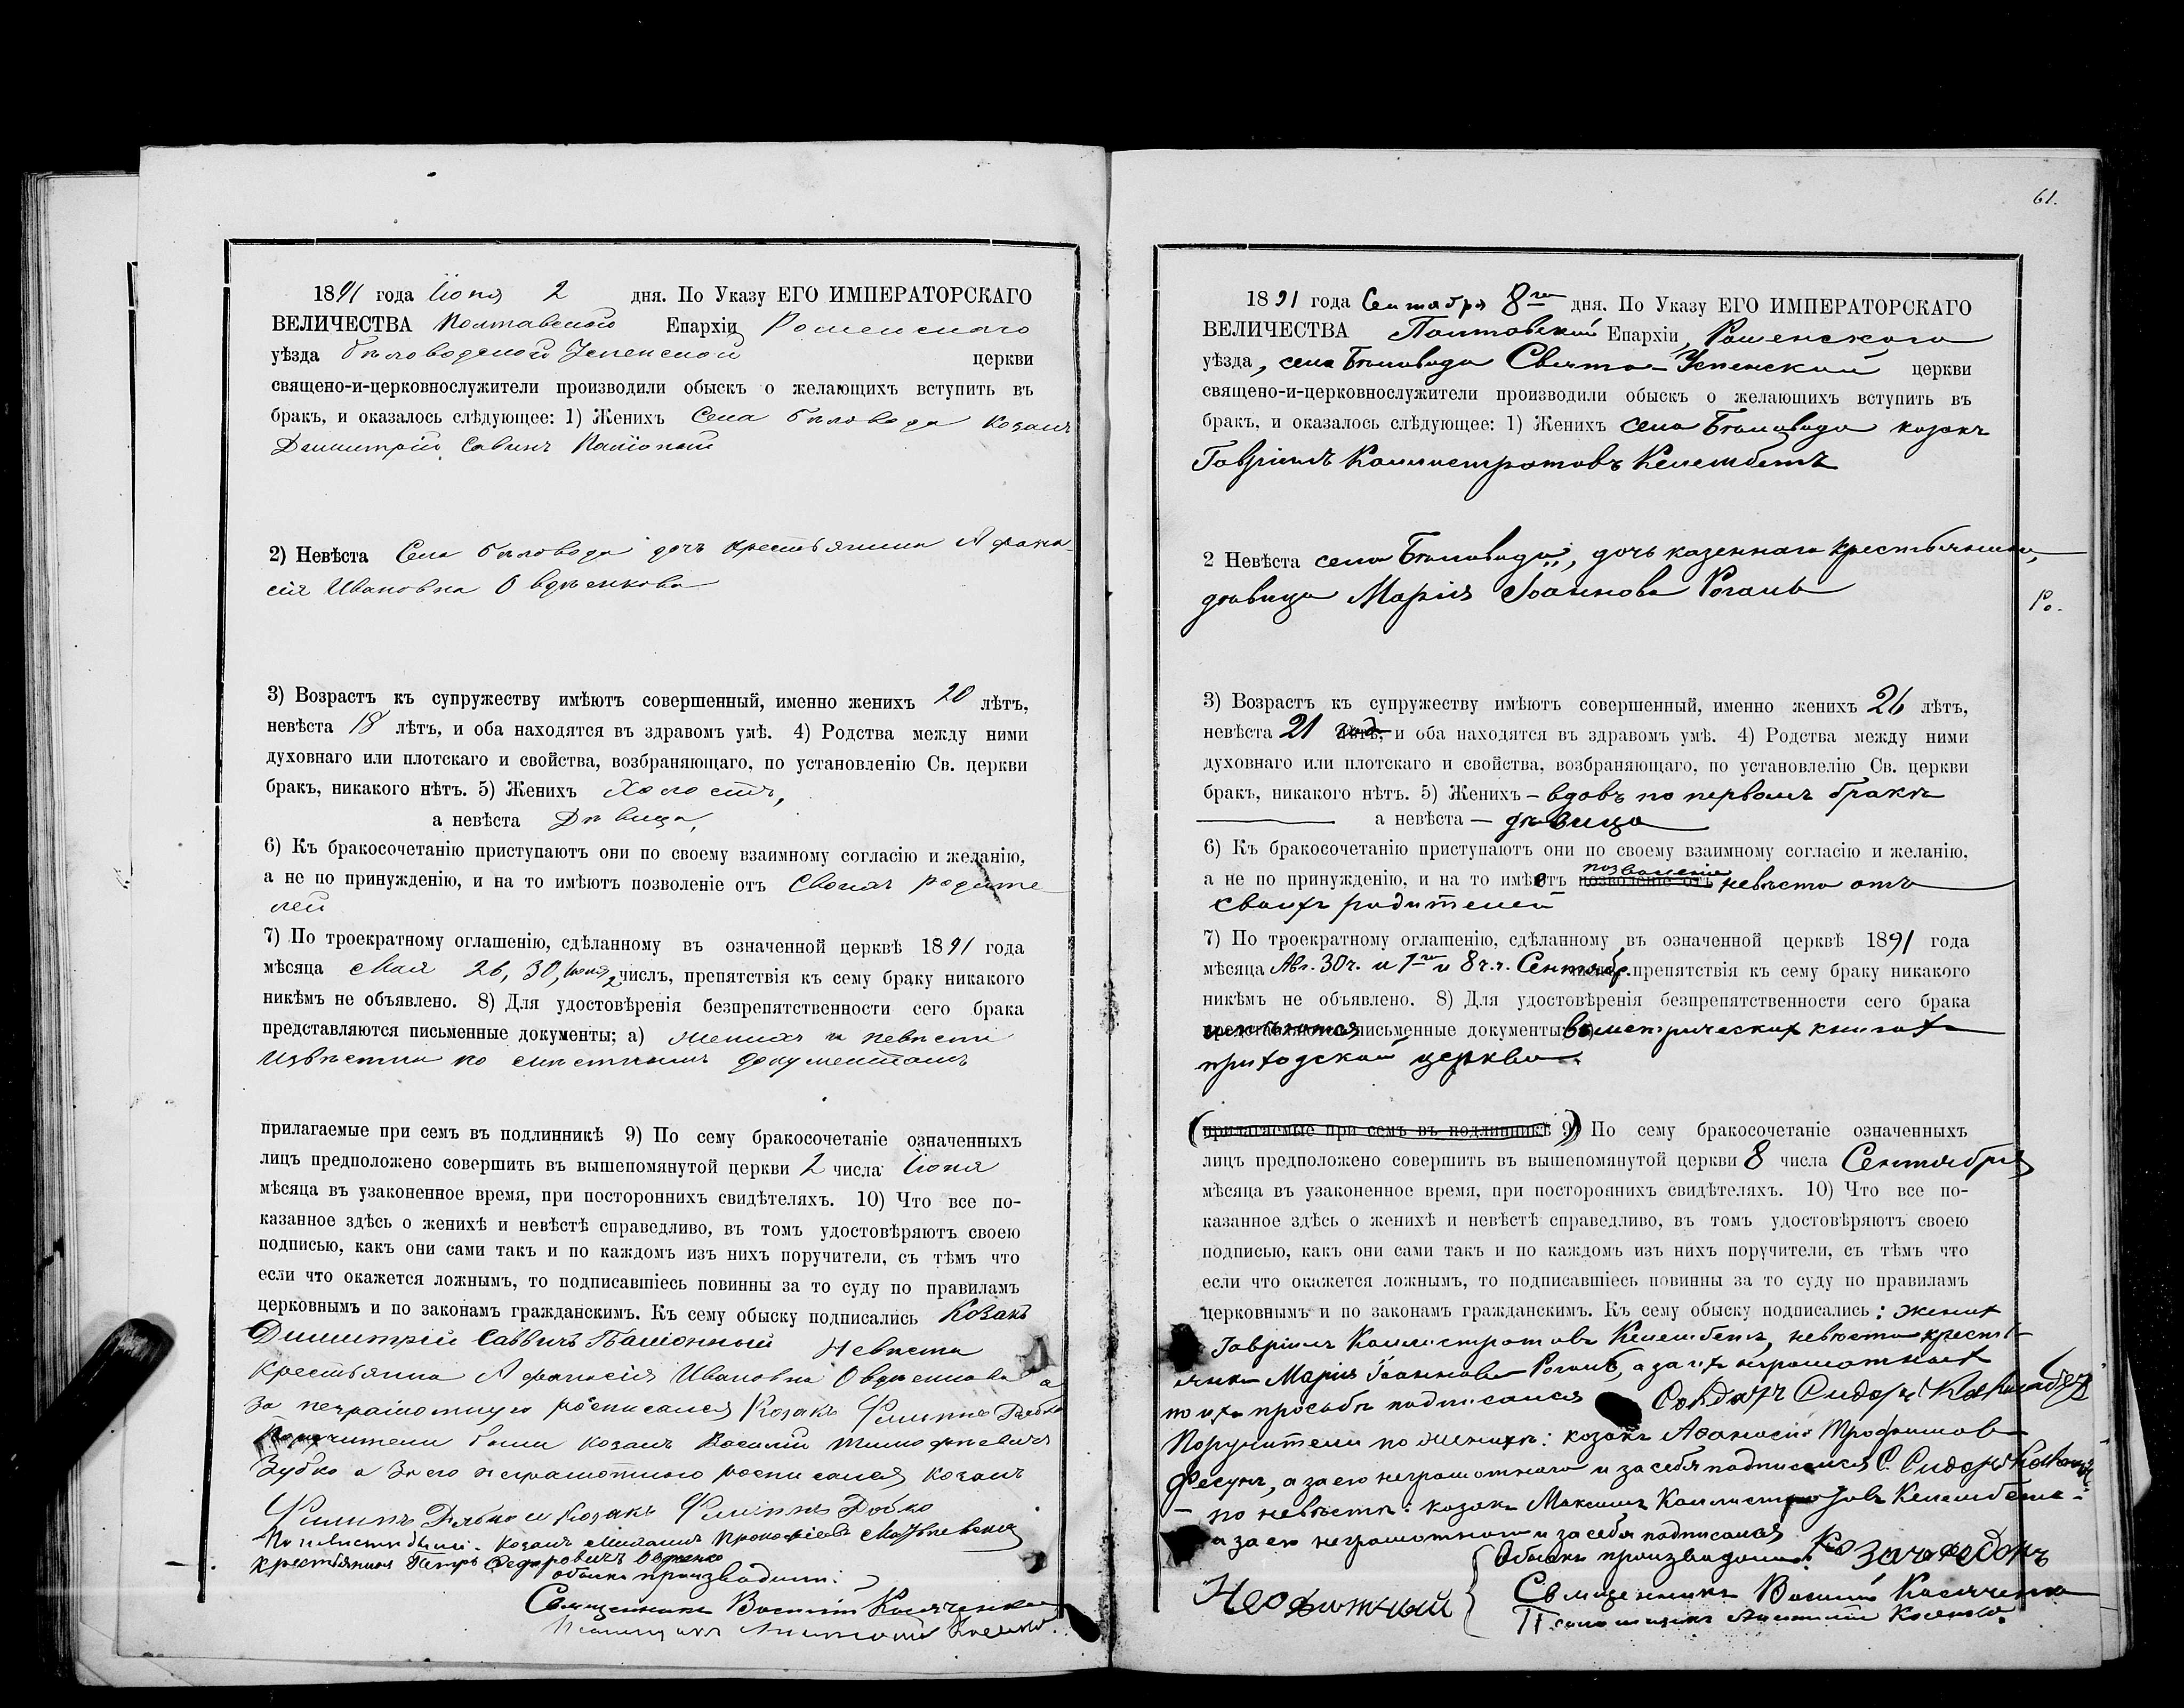 1891 года Іюня 2 дня. По Указу ЕГО ИМПЕРАТОРСКАГО
ВЕЛИЧЕСТВА Полтавской Епархіи Роменскаго
уѣзда Бѣловодской Успенской церкви
священо-и-церковнослужители производили обыскъ о желающихъ вступить въ
бракъ, и оказалось слѣдующее: 1) Женихъ Села Бѣловода козакъ
Димитрій Савинъ
2) Невѣста Села Бѣловода дочь крестьянина Афана-
сія Ивановна Овдѣенкова
3) Возрастъ къ супружеству имѣютъ совершенный, именно женихъ 20 лѣтъ,
невѣста 18 лѣтъ, и оба находятся въ здравомъ умѣ. 4) Родства между ними
духовнаго или плотскаго и свойства, возбраняющаго, по установленію Св. церкви
бракъ, никакого нѣтъ. 5) Женихъ Холостъ,
а невѣста Дѣвица,
6) Къ бракосочетанію приступаютъ они по своему взаимному согласію и желанію,
а не по принужденію, и на то имѣютъ позволеніе отъ Своихъ родите
лей
7) По троекратному оглашенію, сдѣланному въ означенной церквѣ 1891 года
мѣсяца Мая 26, 30, Іюня 2 числъ, препятствія къ сему браку никакого
никѣмъ не объявлено. 8) Для удостовѣренія безпрепятственности сего брака
представляются письменные документы; а) Женихъ и невѣста
извѣстны по документамъ
прилагаемые при семъ въ подлинникѣ 9) По сему бракосочетаніе означенныхъ
лицъ предположено совершить въ вышепомянутой церкви 2 числа Іюня
мѣсяца въ узаконенное время, при постороннихъ свидѣтеляхъ. 10) Что все по-
казанное здѣсь о женихѣ и невѣстѣ справедливо, въ томъ удостовѣряютъ своею
подписью, какъ они сами такъ и по каждомъ изъ нихъ поручители, съ тѣмъ что
если что окажется ложнымъ, то подписавшіесь повинны за то суду по правиламъ
церковнымъ и по законамъ гражданскимъ. Къ сему обыску подписались Козакъ
Димитрій Саввичъ Невѣста
крестьянка Афанасія Ивановна Овдѣенкова а
за неграмотную росписался Козакъ Филиппъ
были козакъ Василій Тимофѣевичъ
Зубко а за его неграмотного росписался козакъ
Филипъ и Козакъ Филиппъ
По невѣстѣ были: козакъ Михаилъ Прокофіевъ
крестьянинъ Петръ Федоровичъ
обыскъ производили:
Священникъ Василій Косяченко
Псаломщикъ
61.
1891 года Сентября 8го дня. По Указу ЕГО ИМПЕРАТОРСКАГО
ВЕЛИЧЕСТВА Полтавской Епархіи, Роменскаго
уѣзда, села Бѣловода Свято-Успенской церкви
священо-и-церковнослужители производили обыскъ о желающихъ вступить въ
бракъ, и оказалось слѣдующее: 1) Женихъ села Бѣловода козакъ
Гавріилъ Каллистратовъ Келембетъ
2 Невѣста села Бѣловода, дочь казеннаго крестьянина,
дѣвица Марія Іоаннова Рогаль
Ро.
3) Возрастъ къ супружеству имѣютъ совершенный, именно женихъ 26 лѣтъ,
невѣста 21 год и оба находятся въ здравомъ умѣ. 4) Родства между ними
духовнаго или плотскаго и свойства, возбраняющаго, по установлелію Св. церкви
бракъ, никакого нѣтъ. 5) Женихъ – вдовъ по первомъ бракѣ
а невѣста – дѣвица
6) Къ бракосочетанію приступаютъ они по своему взаимному согласію и желанію,
а не по принужденію, и на то имѣетъ позволеніе отъ позволеніе невѣста отъ
своихъ родителей
7) По троекратному оглашенію, сдѣланному въ означенной церквѣ 1891 года
мѣсяца Авг. 30ч. и 1го и 8 ч.ч. Сентябр. препятствія къ сему браку никакого
никѣмъ не объявлено. 8) Для удостовѣренія безпрепятственности сего брака
письменные документы въ метрическихъ книгахъ
приходской церкви.
(прилагаемые при семъ въ подлинникѣ 9) По сему бракосочетаніе означенныхъ
лицъ предположено совершить въ вышепомянутой церкви 8 числа Сентября
мѣсяца въ узаконенное время, при посторояннихъ свидѣтеляхъ. 10) Что все по-
казанное здѣсь о женихѣ и невѣстѣ справедливо, въ томъ удостовѣряютъ своею
подписью, какъ они сами такъ и по каждомъ изъ нихъ поручители, съ тѣмъ что
если что окажется ложнымъ, то подписавшіесь повинны за то суду по правиламъ
церковнымъ и по законамъ гражданскимъ. Къ сему обыску подписались: женихъ
Гавріилъ Каллистратовъ Келембетъ, невѣста крестья-
янка Марія Іоаннова Рогаль, а за ихъ неграмотныхъ
по ихъ просьбѣ подписался Солдатъ Сидоръ
Поручители по женихѣ: козакъ Афанасій Трофимовъ
Фесунъ, а за его неграмотнаго и за себя подписался С. Сидоръ
– по невѣстѣ: козакъ Максимъ Каллистратовъ Келембетъ
а за его неграмотнаго и за себя подписался
Неофитный
Обыскъ производили:
Священникъ Василій Косяченко
Псаломщикъ